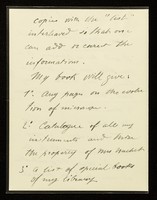 copies with the "list"
interleaved so that one
can add or correct the
information.
My book will give:
1º. Any paper on the evolu
tion of microscope.
2º Catalogue of all my
instruments and then
the property of Mrs
3º a list of special books
of my library.